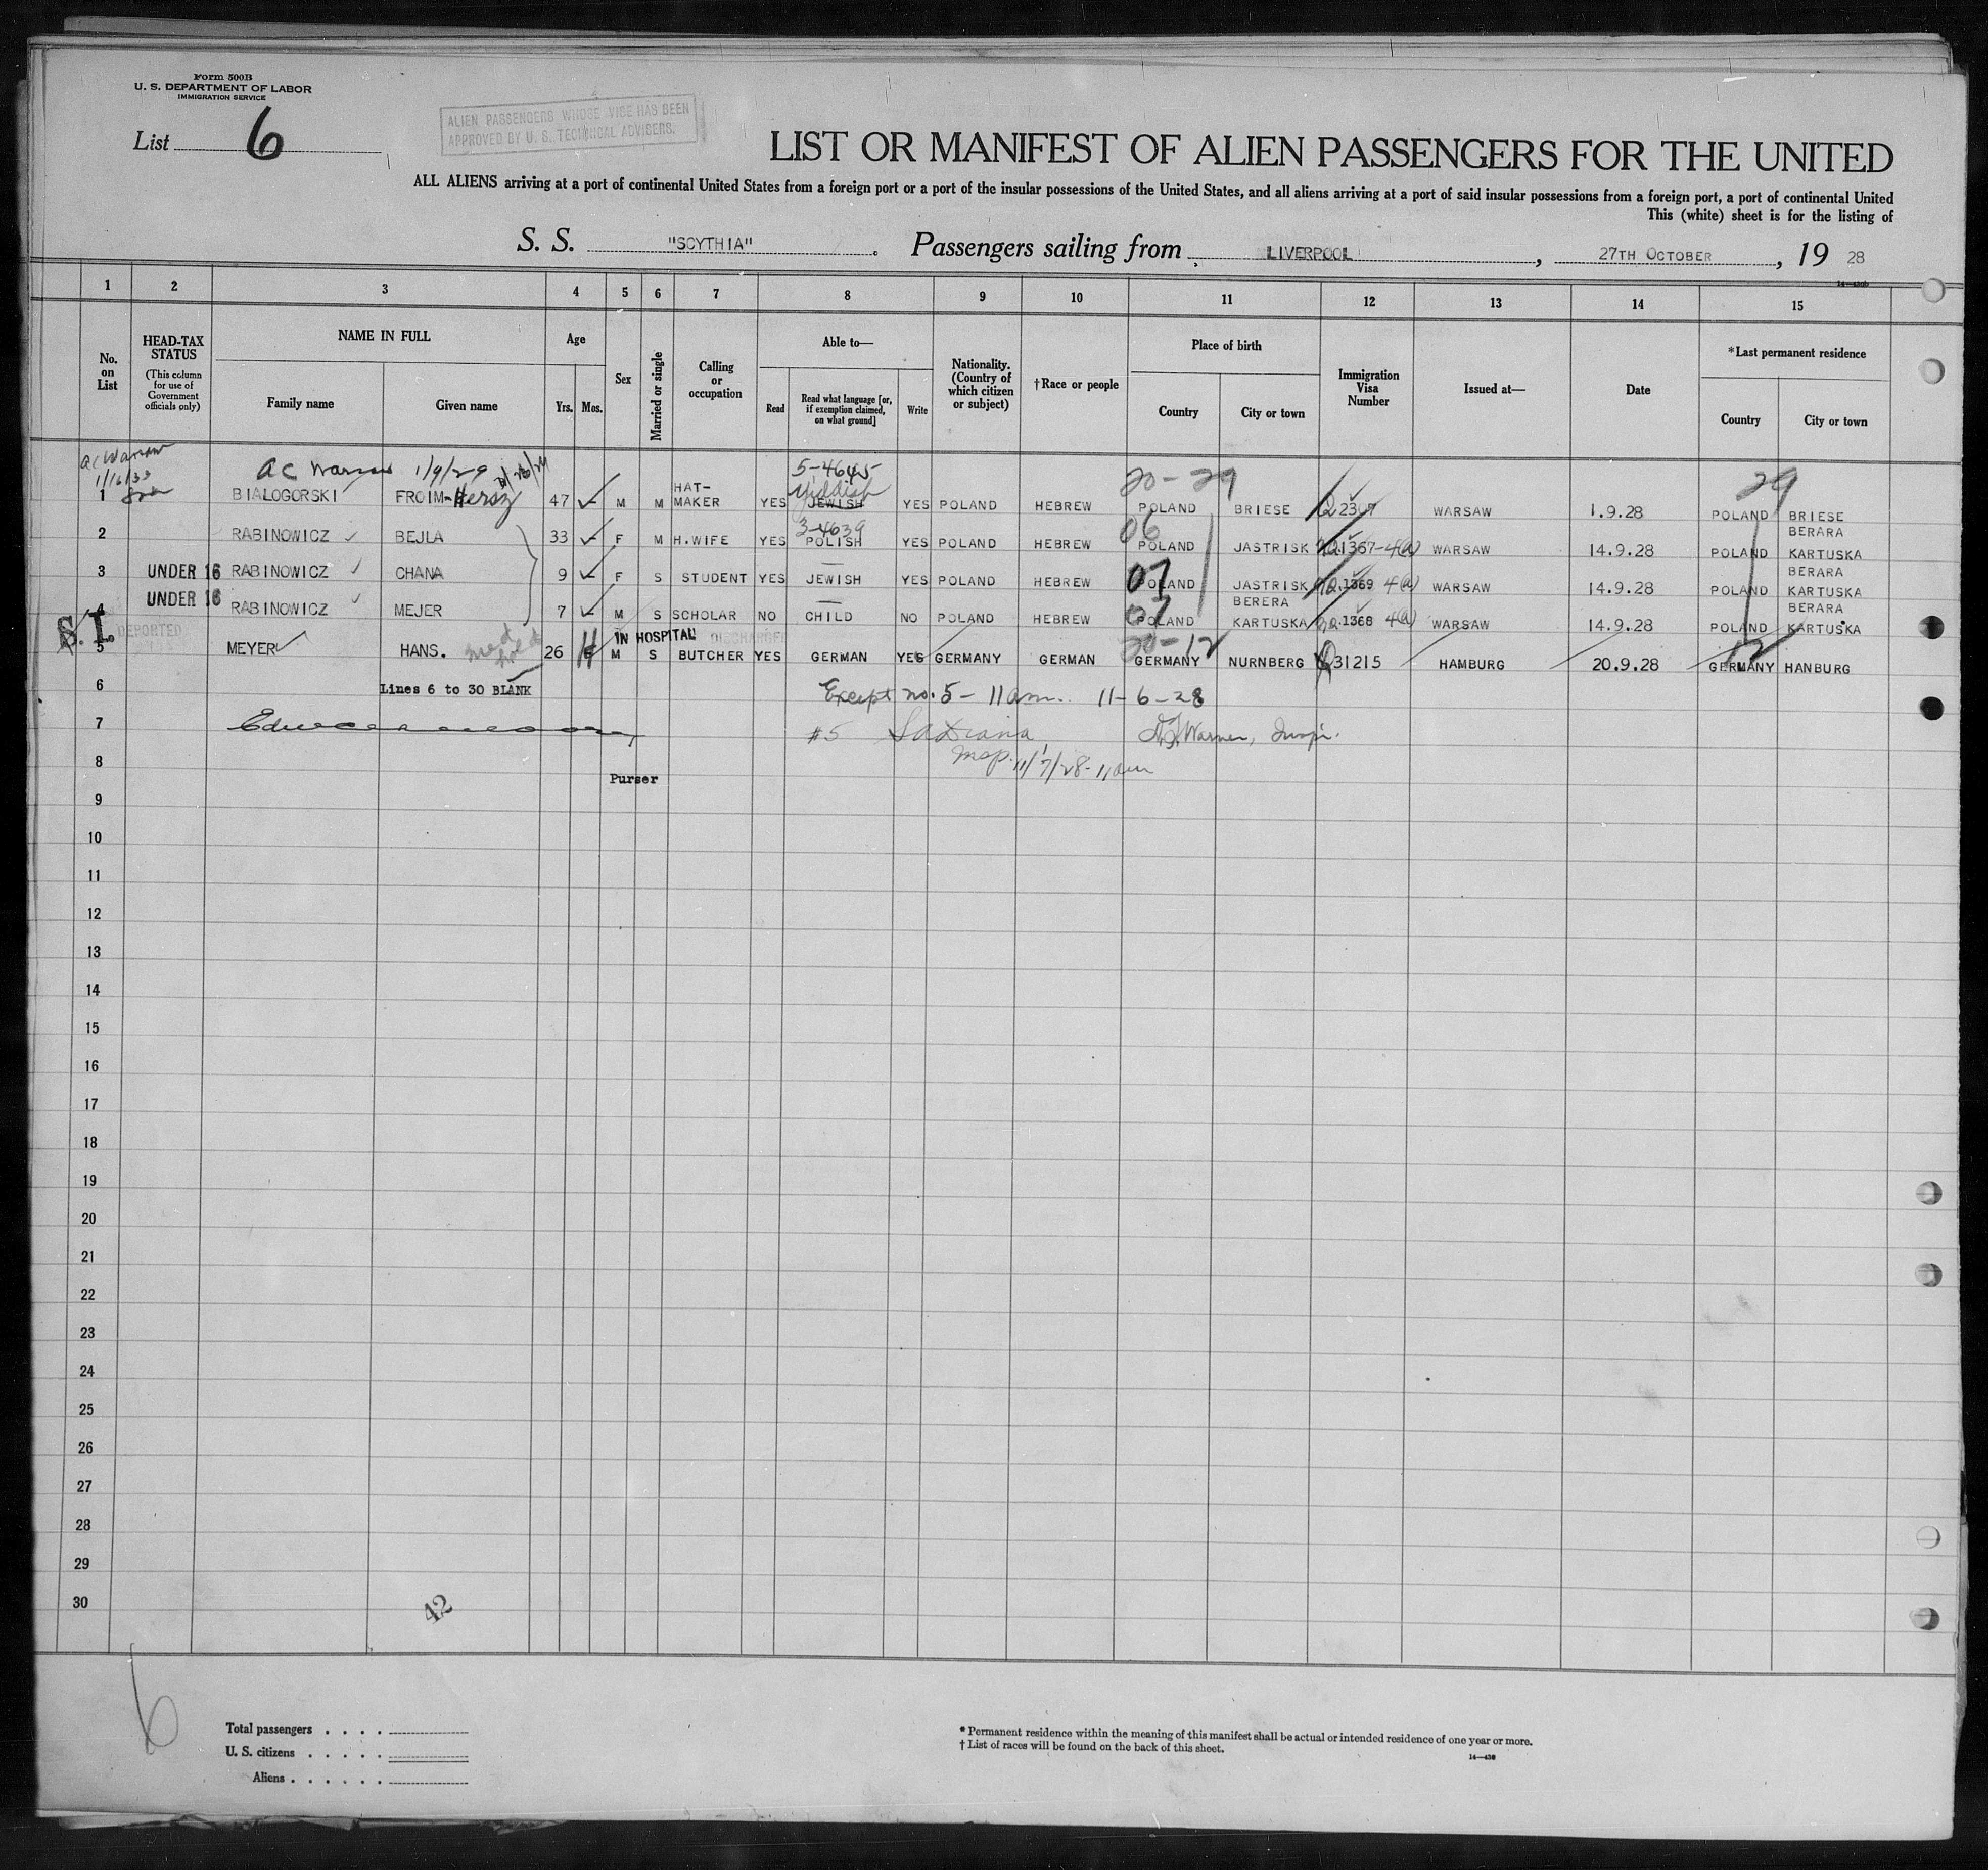 Form 500B
U. S. DEPARTMENT OF LABOR
IMMIGRATION SERVICE
List 6
ALIEN PASSENGERS WHOSE VISE HAS BEEN
APPROVED BY U. S. TECHNICAL ADVISERS.
LIST OR MANIFEST OF ALIEN PASSENGERS FOR THE UNITED
ALL ALIENS arriving at a port of continental United States from a foreign port or a port of the insular possessions of the United States, and all aliens arriving at a port of said insular possessions from a foreign port, a port of continental United
This (white) sheet is for the listing of
S. S. "SCYTHIA" . Passengers sailing from LIVERPOOL , 27TH OCTOBER , 19 28
1 2 3 4 5 6 7 8 9 10 11 12 13 14 15
No. on List
HEAD-TAX STATUS
(This column for use of Government officials only)
NAME IN FULL
Family name Given name
Age
Yrs. Mos.
Sex
Married or single
Calling or occupation
Able to—
Read Read what language [or, if exemption claimed, on what ground] Write
Nationality. (Country of which citizen or subject)
†Race or people
Place of birth
Country City or town
Immigration Visa Number
Issued at—
Date
*Last permanent residence
Country City or town
ac Warsaw
1/16/33
ac Warsaw 1/9/29
5-4645
Yiddish
20-29
29
1 BIALOGORSKI FROIM-Hersz 47 M M HAT-MAKER YES JEWISH YES POLAND HEBREW POLAND BRIESE WARSAW 1.9.28 POLAND BRIESE
3-4639
06
2 RABINOWICZ BEJLA 33 F M H.WIFE YES POLISH YES POLAND HEBREW POLAND JASTRISK Q.1367-4(a) WARSAW 14.9.28 POLAND BERARA KARTUSKA
07
3 UNDER 16 RABINOWICZ CHANA 9 F S STUDENT YES JEWISH YES POLAND HEBREW POLAND JASTRISK Q.1369 4(a) WARSAW 14.9.28 POLAND BERARA KARTUSKA
07
4 UNDER 16 RABINOWICZ MEJER 7 M S SCHOLAR NO CHILD NO POLAND HEBREW POLAND BERERA KARTUSKA Q.1368 4(a) WARSAW 14.9.28 POLAND BERARA KARTUSKA
S.I. DEPORTED
IN HOSPITAL DISCHARGED
20-12
12
5 MEYER HANS. 26 M S BUTCHER YES GERMAN YES GERMANY GERMAN GERMANY NURNBERG Q31215 HAMBURG 20.9.28 GERMANY HANBURG
6 Lines 6 to 30 BLANK Except no. 5 - 11am. 11-6-28
7 #5 Warner, Inspr.
Insp. 11/7/28-11am
8 Purser
9
10
11
12
13
14
15
16
17
18
19
20
21
22
23
24
25
26
27
28
29
30
42
6
Total passengers . . . .
U. S. citizens . . . . .
Aliens . . . . . .
* Permanent residence within the meaning of this manifest shall be actual or intended residence of one year or more.
† List of races will be found on the back of this sheet.
14—430